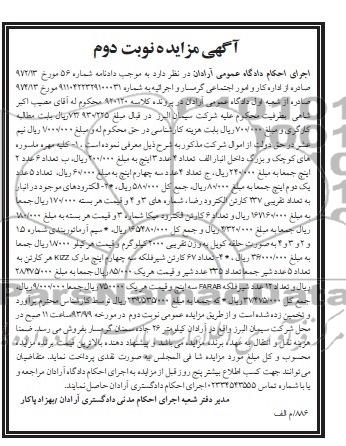 آگهی مزایده نوبت دوم
اجرای احکام دادگاه عمومی آرادان در نظر دارد به موجب دادنامه شماره ۵۶ مورخ ۹۷۲/۱۳
صادره از اداره کار و امور اجتماعی گرمسار و اجرائیه به شماره ۹۱۱۰۴۲۲۳۲۹۱۰۰۰۳۱ مورخ ۹۷۴/۱۳
صادره از شعبه اول دادگاه عمومی آرادان در پرونده کلاسه ۹۴۰۱۲۰ محکوم له آقای مصیب اکبر
شاهی بطرفیت محکوم علیه شرکت سیمان البرز در قبال مبلغ ریال بابت مطالبه
کارگری و مبلغ ریال بابت هزینه کارشناسی در حق محکوم له و مبلغ ۱/۰۰۰/۰۰۰ ریال نیم
عشر در حق دولت از اموال شرکت مذکور به شرح ذیل معرفی نموده است . ۱- کلیه مهره ماسوره
های کوچک و بزرگ داخل انبار الف تعداد ۴ عدد ۳ اینچ به مبلغ ریال، ب تعداد ۶ عدد ۲
اینچ جمعا به مبلغ ۲۴۰/۰۰۰ ریال، ج تعداد ۴ عدد سه چهارم اینچ به مبلغ ۶۰/۰۰۰ ریال، تعداد ۵ عدد
یک دوم اینچ جمعا به مبلغ ۸۰/۰۰۰ ریال، جمع کل ۵۸۰/۰۰۰ ریال، ۲- الکترودهای موجود در انبار
به تعداد تقریبی ۳۳۷ کارتن الکترود رضا، شماره های ۳ و ۴ و قیمت هر بسته ۱۷/۰۰۰ ریال جمعا
به مبلغ ریال و تعداد ۶ کارتن الکترود میکا شماره ۳ و قیمت هر بسته به مبلغ ۱۸۰/۰۰۰
ریال جمعا به مبلغ ریال و جمع کل ریال، سیم آرماتوربندی شماره ۱.۵
و ۲ و ۳ و ۴ به صورت حلقه کویل به وزن تقریبی ۲۰۰۰ کیلوگرم و قیمت هر کیلو ۱۸۰۰۰ ریال جمعا
به مبلغ ۳۶/۰۰۰/۰۰۰ ریال، تعداد ۶۷ کارتن شیرفلکه سه چهارم اینچ مارک KIZZ هر کارتن به
تعداد ۵ عدد شیر جمعا تعداد ۳۳۵ عدد شیر و قیمت هر یک ۸۵/۰۰۰ ریال جمعا به مبلغ ۲۸/۴۷۵/۰۰۰
ریال و تعداد ۱۲ عدد شیر فلکه FARAB سه اینچ و قیمت هر یک ریال جمعا ۹/۰۰۰/۰۰۰ ریال،
جمع کل ۳۷/۴۷۵/۰۰۰ ریال که جمعا به مبلغ ریال توسط کارشناس محترم برآورد
و تخمین زده شده است و از طریق مزایده عمومی نوبت دوم در مورخه ۹۳۹۹ ساعت ۱۱ صبح در
محل شرکت سیمان البرز واقع در آرادان کیلومتر ۲۶ جاده سمنان گرمسار بفروش می رسد. ضمنا
هزینه نقل و انتقال به عهده برنده مزایده می باشد. از پیشنهاد دهنده بالاترین قیمت برنده مزایده
محسوب و کل مبلغ مورد مزایده شا فی المجلس به صورت نقدی پرداخت نماید. متقاضیان
می توانند جهت کسب اطلاع بیشتر پنج روز قبل از مزایده به اجرای احکام دادگاه آرادان مراجعه و
یا با شماره تماس ۰۲۳۳۴۵۴۳۵۵۵ اجرای احکام دادگستری آرادان حاصل نمایند.
مدیر دفتر شعبه اجرای احکام مدنی دادگستری آرادان /بهزاد پاکار
۸۸۶/م الف